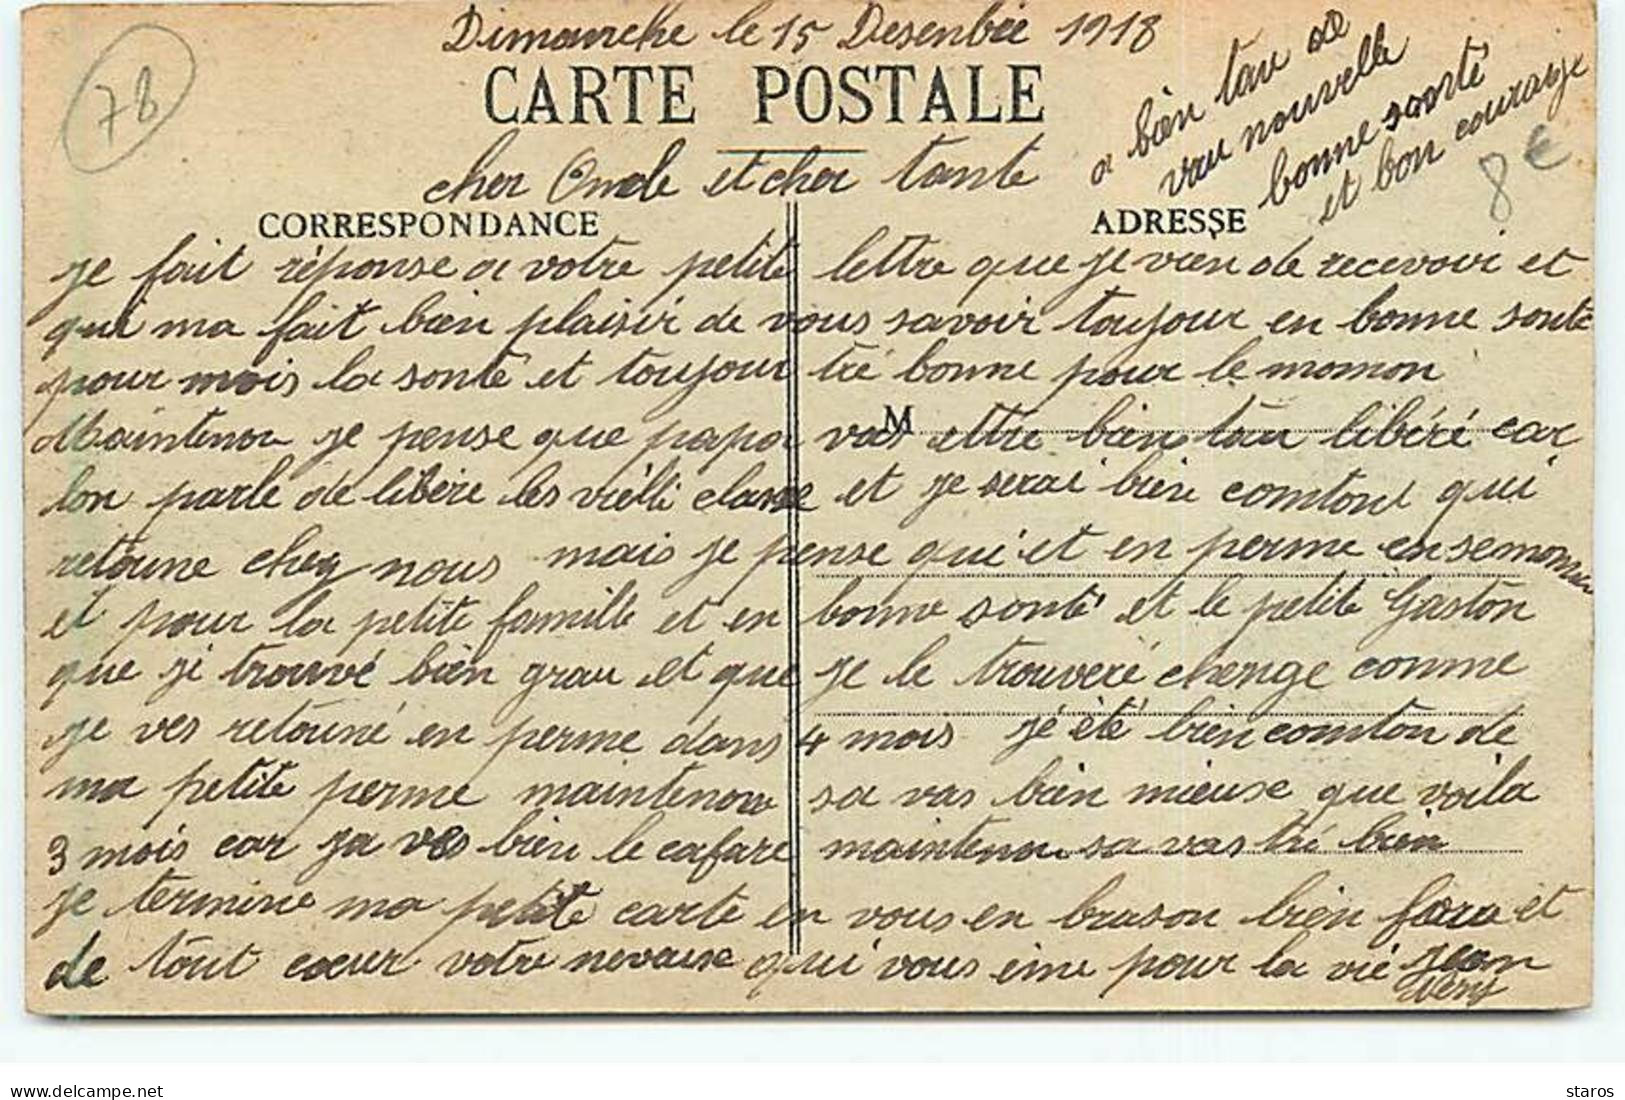 Dimanche le 15 Desenbre 1918
78
CARTE POSTALE
a bien tau de
vau nouvelle
bonne santé
et bon courage
8€
cher Oncle et cher tante
CORRESPONDANCE
ADRESSE
je fait réponse a votre petite lettre que je vien de recevoir et
qui ma fait bien plaisir de vous savoir toujour en bonne santé
pour mois la santé et toujour tré bonne pour le moman
M
Maintenau je pense que papa vas ettre bien tau libéré car
lon parle de libere les vielli classe et je serai bien comtont qui
retoune chez nous mais je pense qui et en perme en se moman
et pour la petite famille et en bonne santé et le petite Gaston
que ji trouvé bien grau et que je le trouveré chenge comme
je ves retouné en perme dans 4 mois jé été bien comtau de
ma petite perme maintenau sa vas bien mieuse que voila
3 mois car ja ves bien le cafare maintenau sa vas tré bien
je termine ma petite carte en vous en brason bien fore et
de tout cœur votre nevause qui vous éme pour la vié Jean
Very
staros